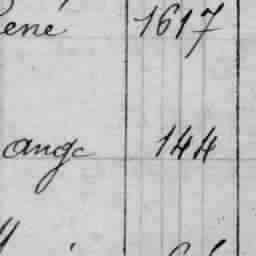 ene 1617
ange 144